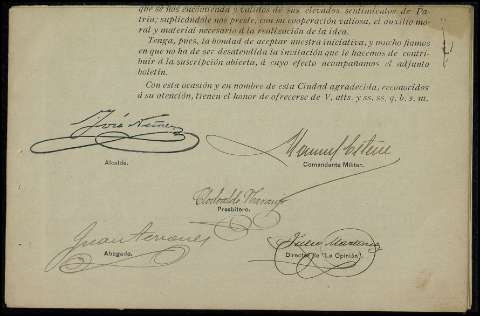 que se nos encomienda y validos de sus elevados sentimientos de Pa-
tria; suplicándole nos preste, con su cooperación valiosa, el auxilio mo-
ral y material necesario á la realización de la idea.
Tenga, pues, la bondad de aceptar nuestra iniciativa, y mucho fiamos
en que no ha de ser desatendida la invitación que le hacemos de contri-
buir á la suscripción abierta, á cuyo efecto acompañamos el adjunto
boletín.
Con esta ocasión y en nombre de esta Ciudad agradecida, reconocidos
á su atención, tienen el honor de ofrecerse de V, atts. y ss, ss, q, b, s, m.
José
Alcalde.
Manuel
Comandante Militar.
Clodoaldo
Presbítero.
Juan
Abogado.
Julio Martinez
Director de "La Opinión".